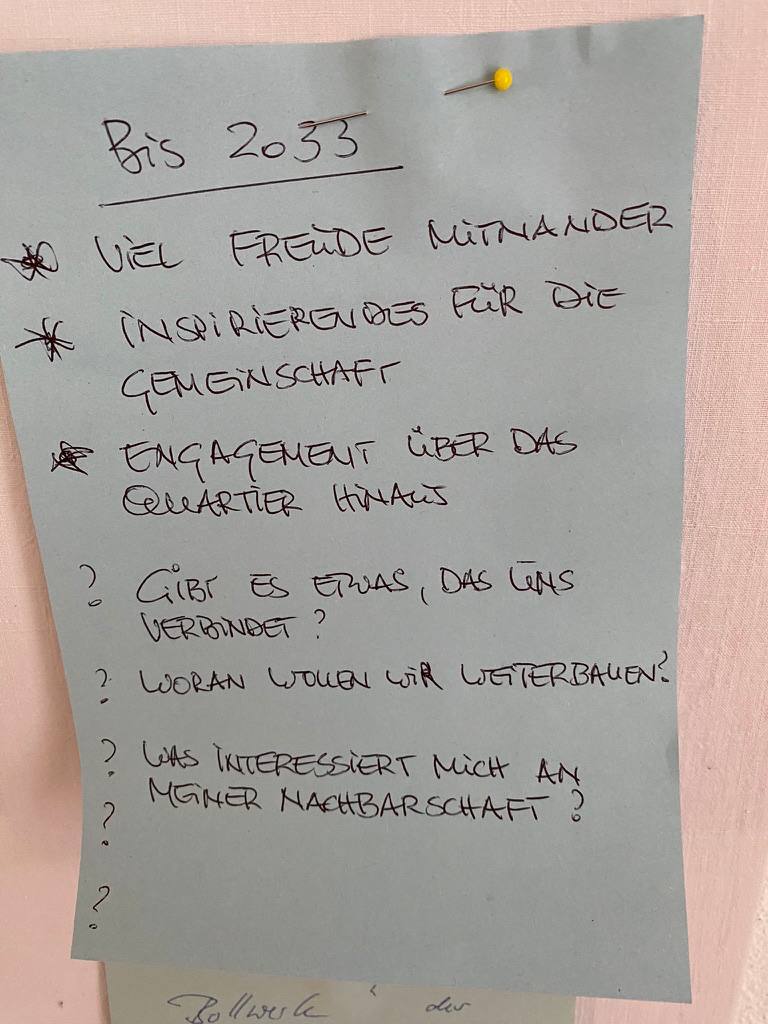 Bis 2033
* VIEL FREUDE MITNANDER
* INSPIRIERENDES FÜR DIE
GEMEINSCHAFT
* ENGAGEMENT ÜBER DAS
QUARTIER HINAUS
? GIBT ES ETWAS, DAS UNS
VERBINDET?
? WORAN WOLLEN WIR WEITERBAUEN?
? WAS INTERESSIERT MICH AN
MEINER NACHBARSCHAFT?
?
?
Bollwerk der